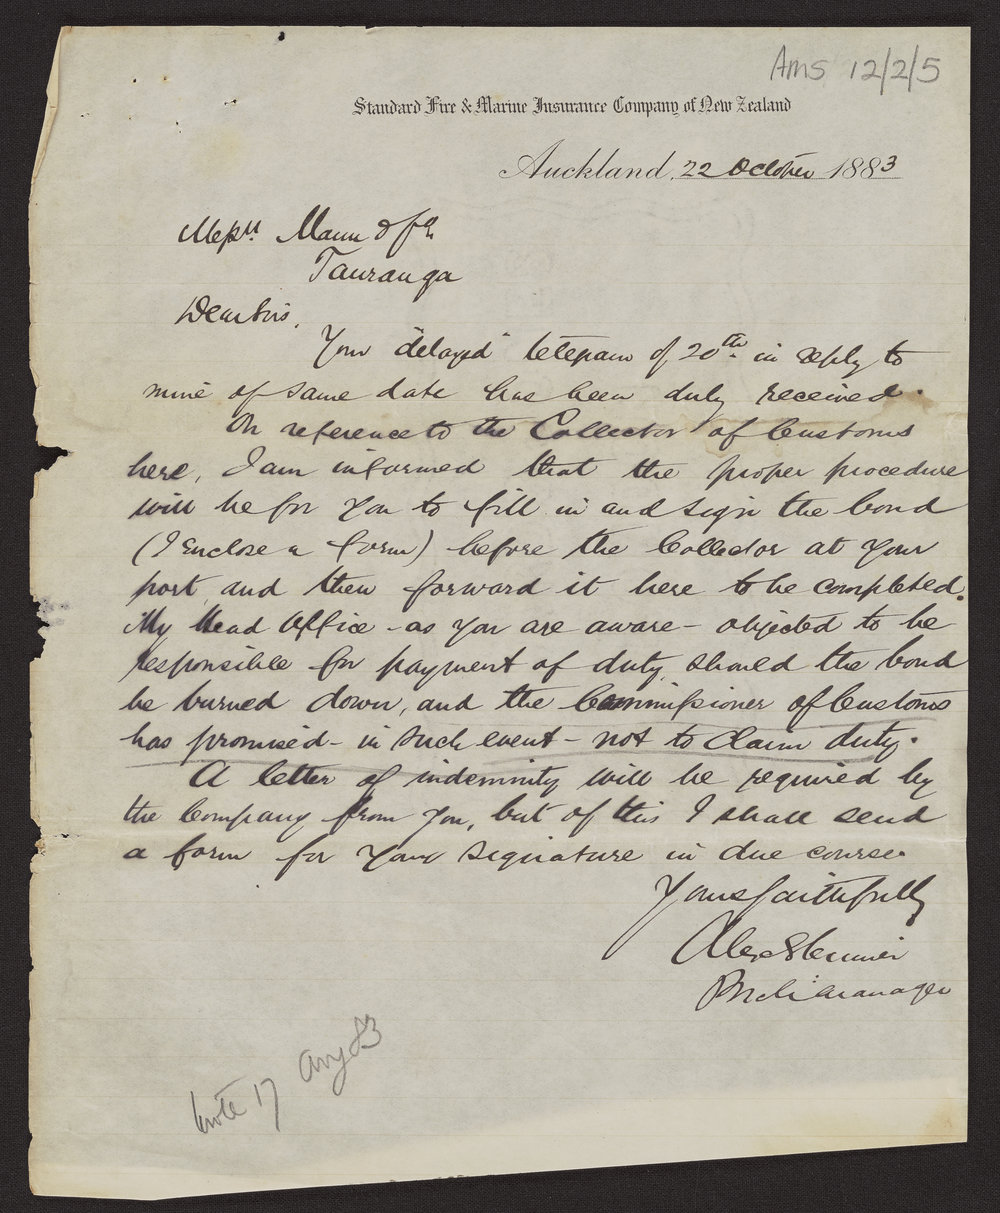 Ams 12/2/5
Standard Fire & Marine Insurance Company of New Zealand
Auckland, 22 October 1883
Messrs Mann & Co
Tauranga
Dear Sirs,
Your "delayed" telegram of 20th in reply to
mine of same date has been duly received.
On reference to the Collector of Customs
here, I am informed that the proper procedure
will be for you to fill in and sign the bond
(I enclose a form) before the Collector at your
port, and then forward it here to be completed.
My Head Office - as you are aware - objected to be
responsible for payment of duty, should the bond
be burned down, and the Commissioner of Customs
has promised - in such event - not to claim duty.
A letter of indemnity will be required by
the Company from you, but of this I shall send
a form for your signature in due course.
Yours faithfully
Manager
Wrote 17 Aug 83